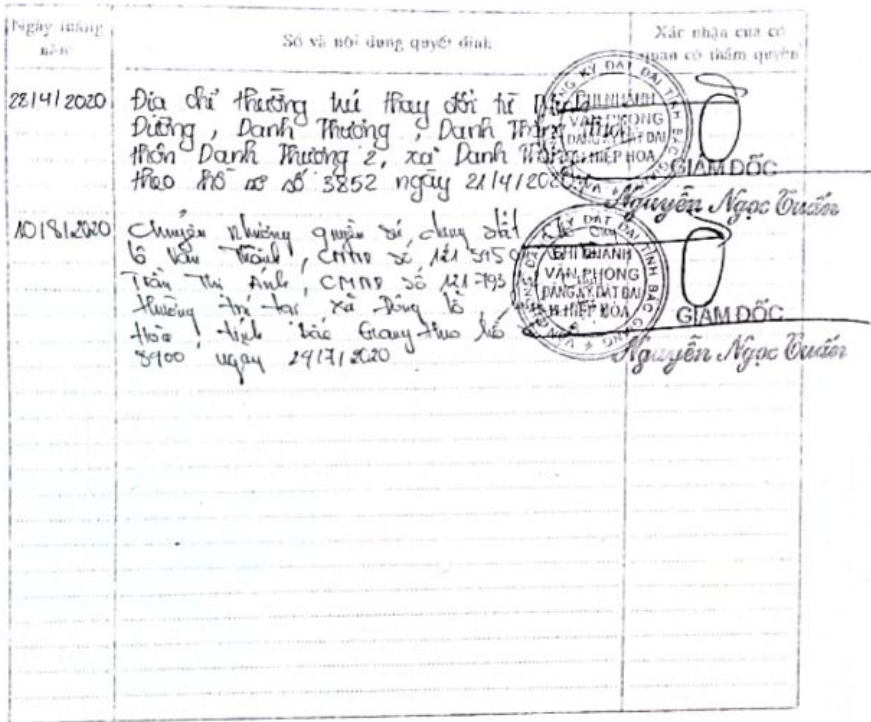 Ngày tháng năm
Số và nội dung quyết định
Xác nhận của cơ quan có thẩm quyền
28/4/2020
Địa chỉ thường trú thay đổi từ
Dưỡng, Danh Thượng, Danh Thắng
thôn Danh Thượng 2, xã Danh Thắng
theo hồ sơ số 3852 ngày 21/4/2020
CHI NHÁNH
VĂN PHÒNG
ĐĂNG KÝ ĐẤT ĐAI
H.HIỆP HÒA
GIÁM ĐỐC
Nguyễn Ngọc Tuấn
10/8/2020
Chuyển nhượng quyền sử dụng đất
Văn Thành, CMND số
Trần Thị Ánh, CMND số 121793
thường trú tại xã Đông Lỗ
Hòa, tỉnh Bắc Giang theo hồ
8900 ngày 24/7/2020
CHI NHÁNH
VĂN PHÒNG
ĐĂNG KÝ ĐẤT ĐAI
H.HIỆP HÒA
GIÁM ĐỐC
Nguyễn Ngọc Tuấn